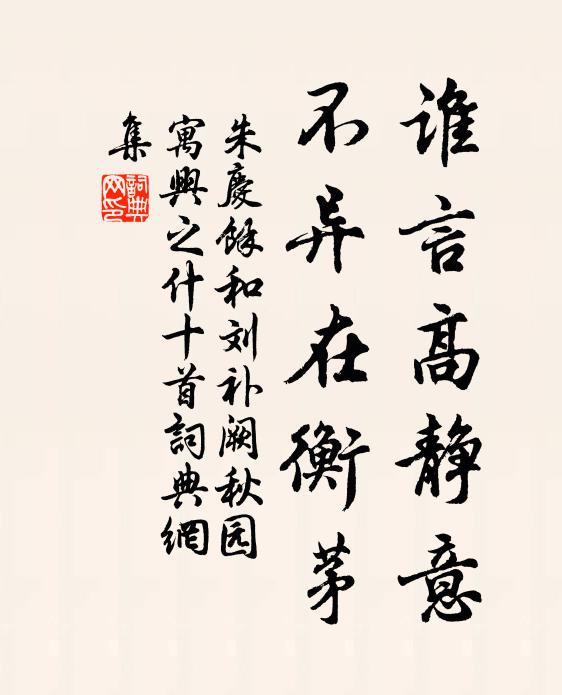 谁言高静意
不异在衡茅
朱慶餘和刘补阙秋园
寓興之什十首詞典網
集
詞典
网印